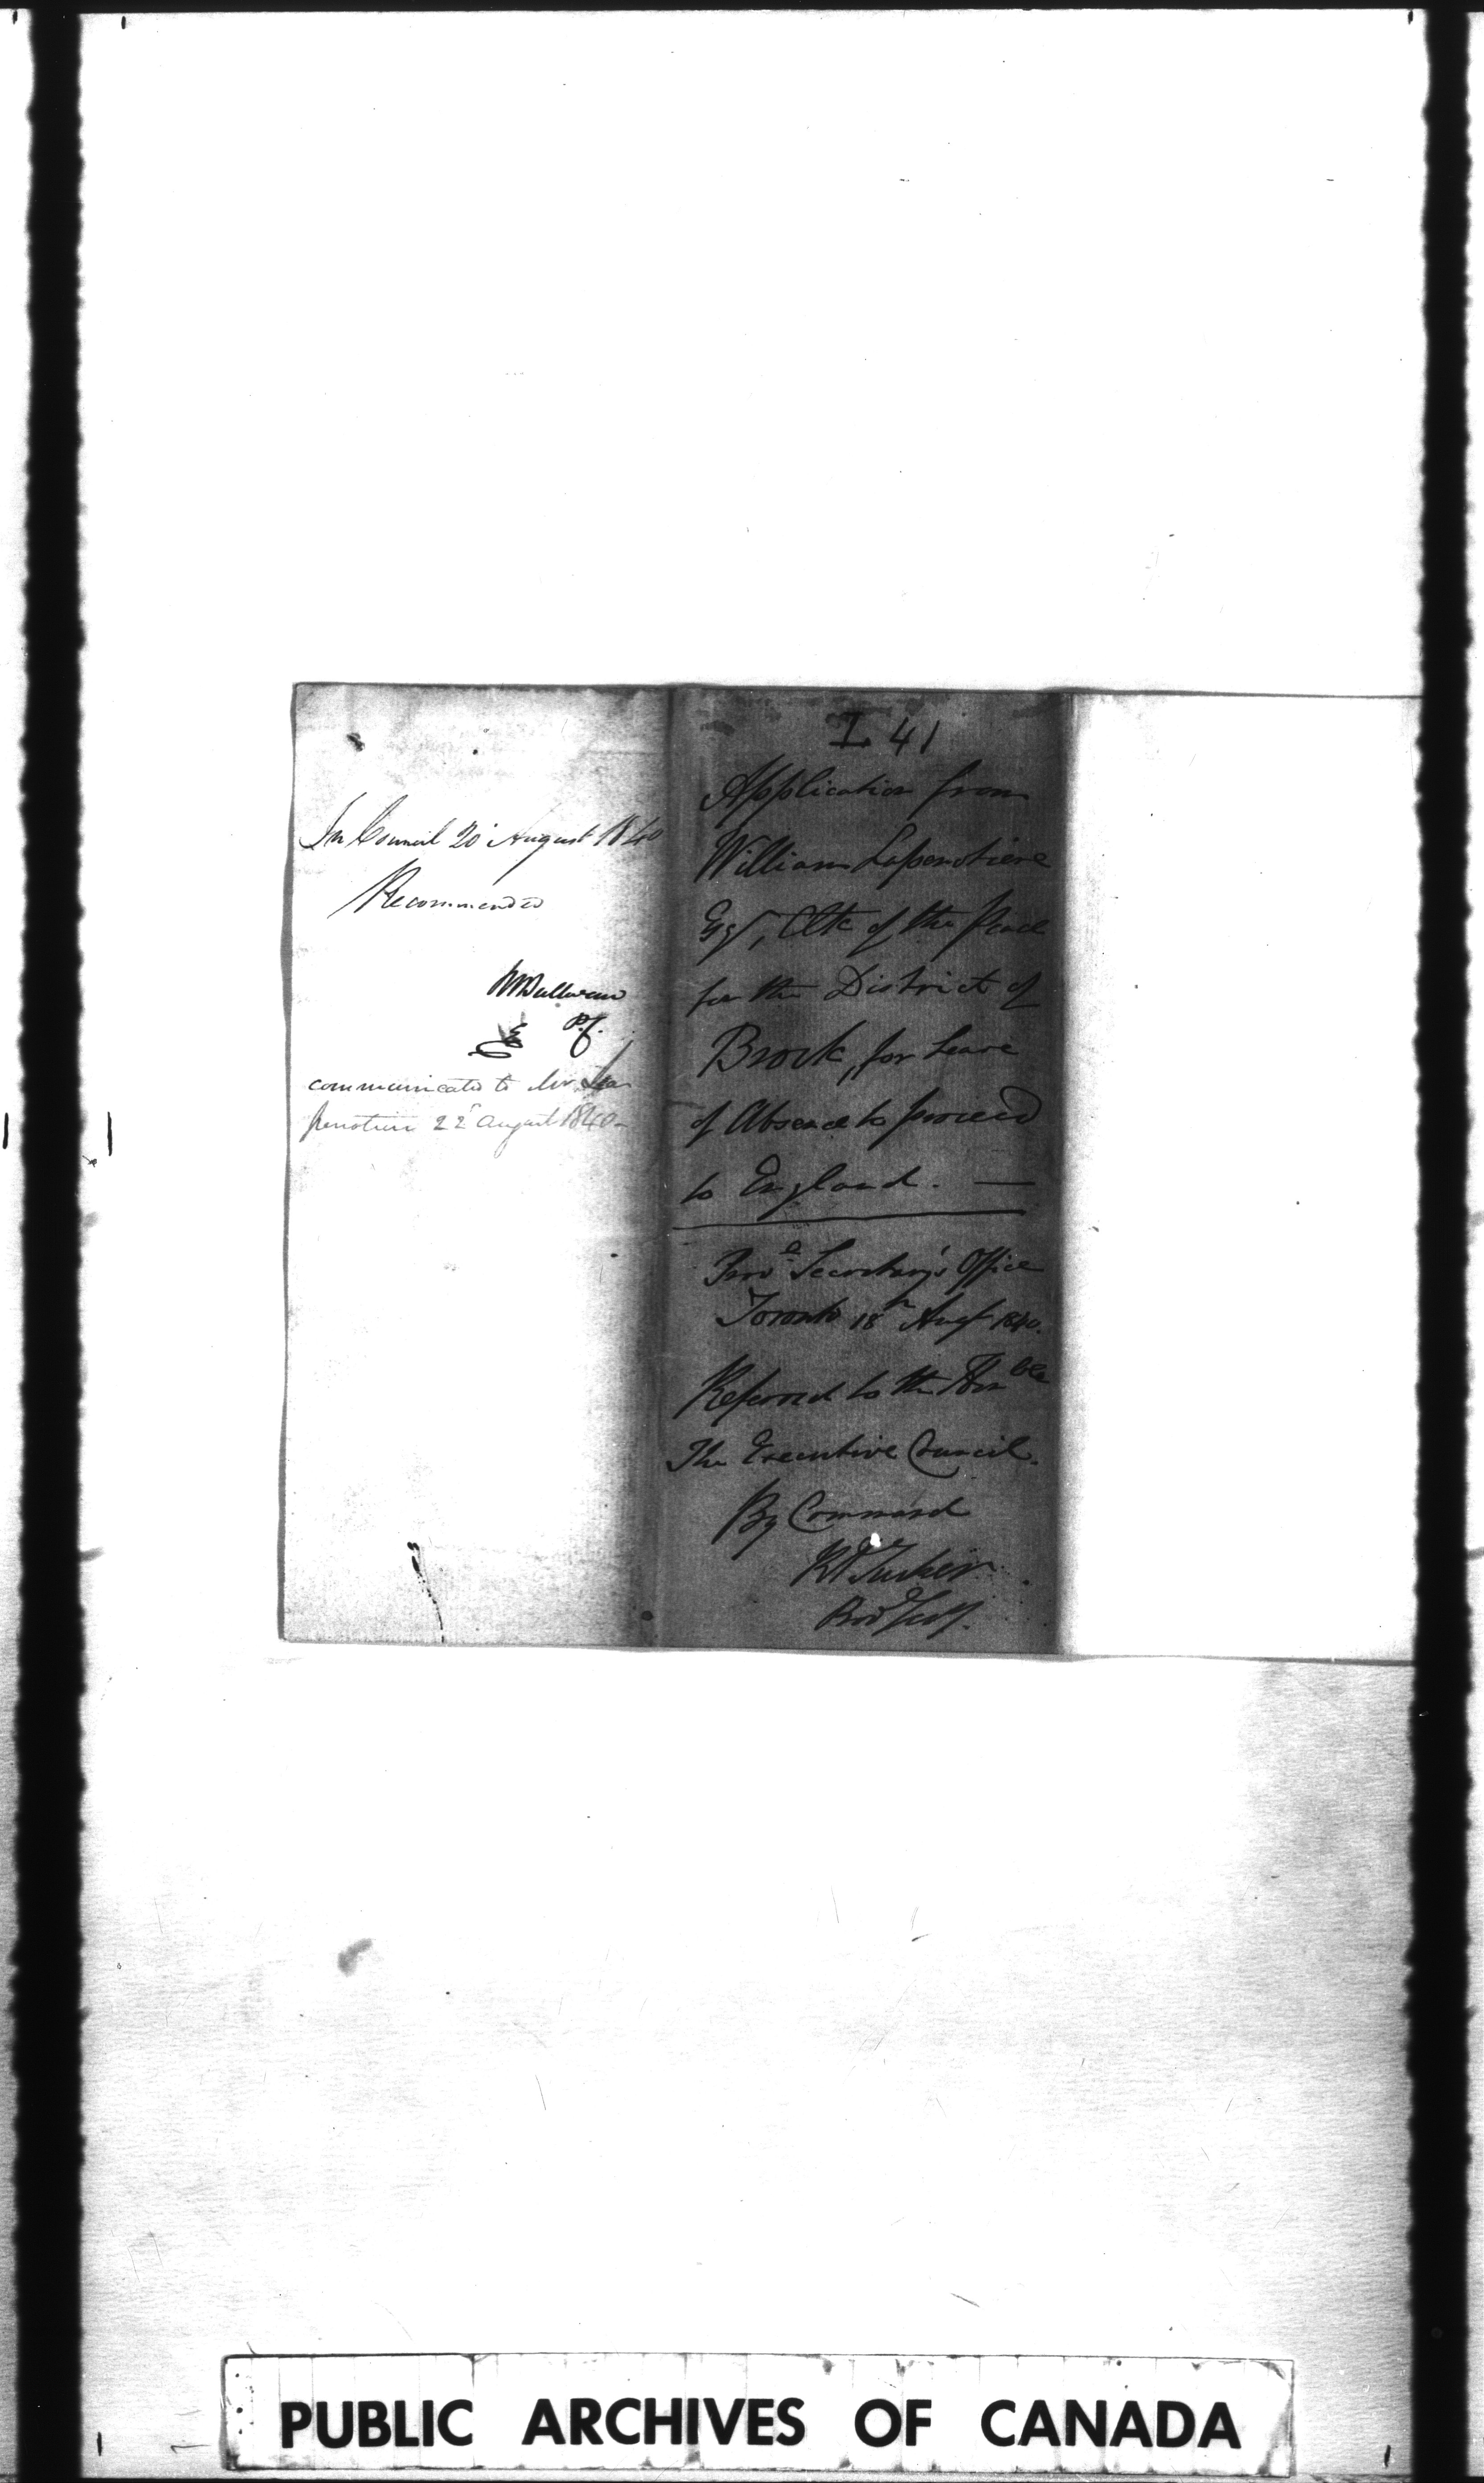 In Council 20 August 1840
Recommended
P.C.
communicated to Mr La
penotiere 22d August 1840 -
L 41
Application from
William Lapenotiere
Esqr, Clk of the Peace
for the District of
Brock, for Leave
of Absence to proceed
to England. —
Secretary's Office
Toronto 18th Augt 1840.
Referred to the Honble
The Executive Council.
By Command
Tucker
PUBLIC ARCHIVES OF CANADA